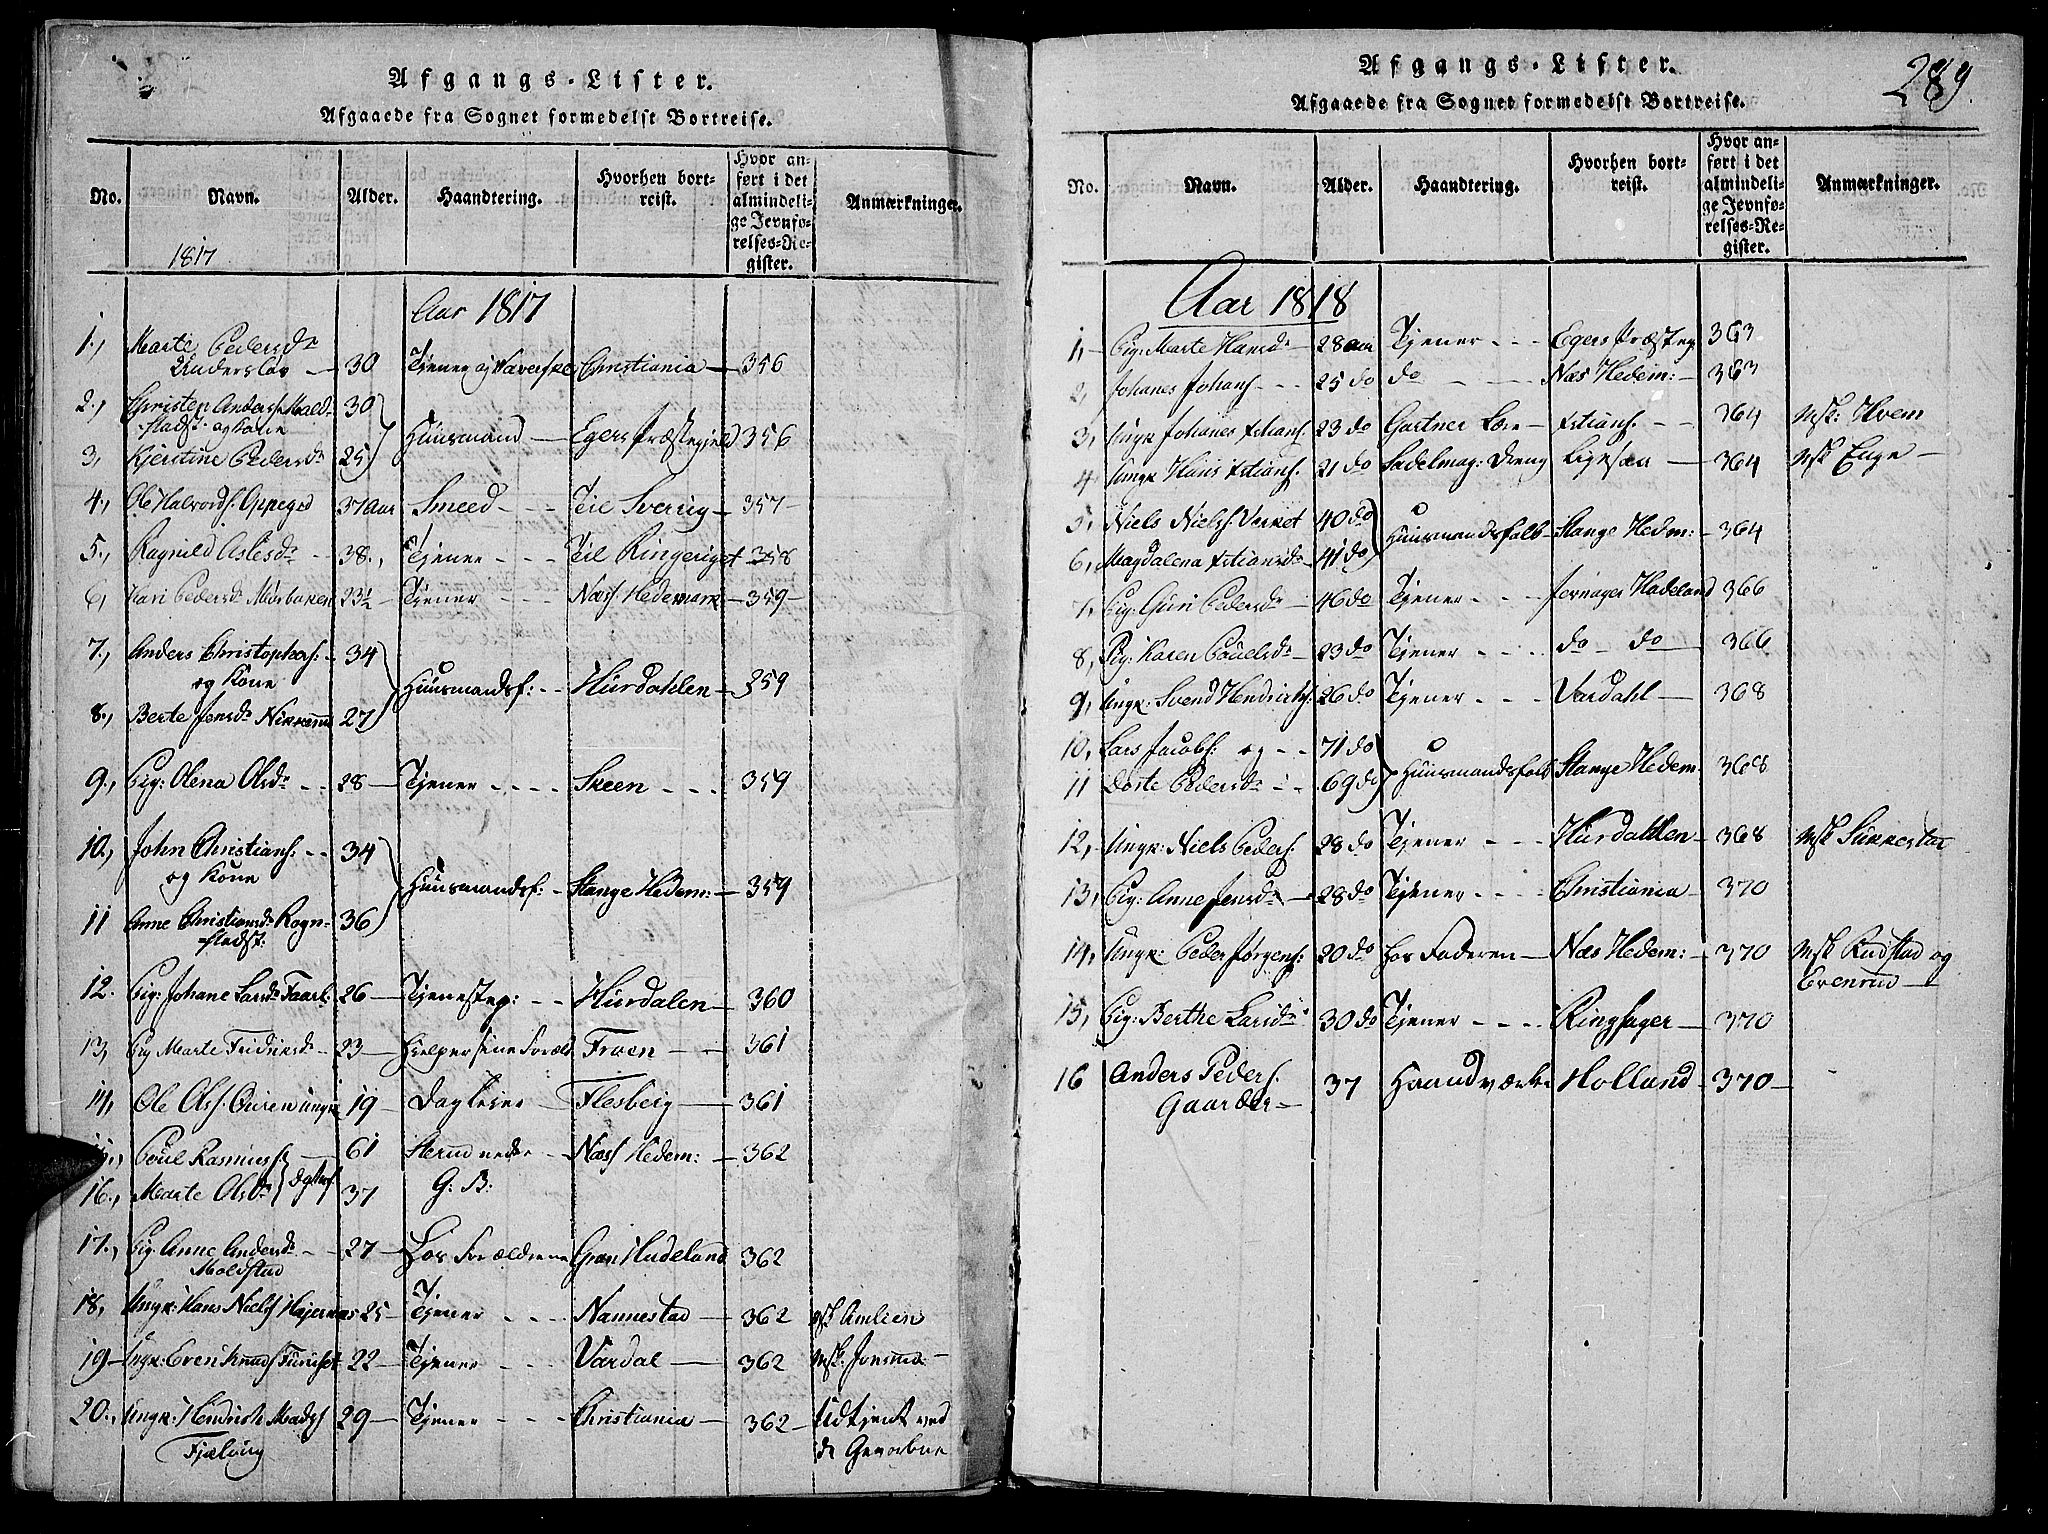 Afgangs-Lister.
Afgaaede fra Sognet formedelst Bortreise.
No. Navn. Alder. Haandtering. Hvorhen bortreist. Hvor anført i det almindelige Jevnførelses-Register. Anmærkninger.
1817
Aar 1817
1., Marte Pedersdr
Underslov 30 Tjener og Væverske Christiania 356
2., Christen Anders. Mald- 30
stadst. og Kone Huusmand Egers Præstegjeld 356
3, Kjerstine Pedersdr 25
4., Ole Halvords. Oppegrd 37 Aar Smeed Til Sverrig 357
5., Ragnild Aslesdr 38., Tjener Til Ringeriget 358
6, Kari Pedersdr Mürbaken 23½ Tjener Næss Hedemark 359
7., Anders Christophers: 34
og Kone Huusmandsf: Hurdahlen 359
8., Berte Jensdr 27
9., Pig: Olena Olsdr 28 Tjener Skeen 359
10., John Christians: 34
og Kone Huusmandsf: Stange Hedem: 359
11 Anne Christiansdr Rogn- 36
stedst:
12. Pig: Johane Larsdr Faarl: 26 Tjenestep: Hurdalen 360
13, Pig Marte Fridriksdr 23 Hielper sine Foræld Froen 361
14, Ole Ols. Ouren ungk 19 Dagleier Flesberg 361
15., Poul Rasmuss 61 Næss Hedem: 362
16., Marte Olsdr 37 G: B:
17., Pig. Anne Andersdr 27 Hos Forældrene Gran Hadeland 362
Moldstad
18, Ungk: Hans Niels. Hajernæs 25 Tjener Nannestad 362 Msk Amlien
19 Ungk: Even Knuds Furuset 22 Tjener Vardal 362 Msk. Jonsrud
20., Ungk: Hendrich Mads 29 Tjener Christiania 362 Udtjent ved
Fjælvug de Gevorbne
Afgangs-Lister. 289.
Afgaaede fra Sognet formedelst Bortreise.
No. Navn. Alder. Haandtering. Hvorhen bortreist. Hvor anført i det almindelige Jevnførelses-Register. Anmærkninger.
Aar 1818
1, Pig: Marte Hansdr 28 aar Tjener Egers Præsteg 363
2, Johanes Johans 25 do do Næs Hedem: 363
3, Ungk Johanes Xstians. 23 do Gartner Lære Xstians. 364 Msk: Hvem
4 Ungk Hans Xstians. 21 do Sadelmag: Dreng Ligesaa 364 Msk Enge
5, Niels Niels. Verket 40 do Huusmandsfolk Stange Hedem: 364
6, Magdalena Xstiansdr 41 do
7, Pig: Guri Pedersdr 46 do Tjener Jevnager Hadeland 366
8, Pig: Karen Pouelsdr 23 do Tjener do do 366
9, Ungk: Svend Hendrichs: 26 do Tjener Vardahl 368
10, Lars Jacobs: og 71 do Huusmandsfolk Stange Hedem. 368
11 Dorte Pedersdr 69 do
12, Ungk: Niels Peders. 28 do Tjener Hurdahlen 368 Msk Sukkestad
13, Pig: Anne Jensdr 28 do Tjener Christiania 370
14, Ungk: Peder Jørgens: 20 do Hos Faderen Næs Hedem: 370 Msk Rudstad og
Evenrud
15, Pig: Berthe Larsdr 30 do Tjener Ringsager 370
16 Anders Peders. 37 Haandværke Holland 370
Gaarder